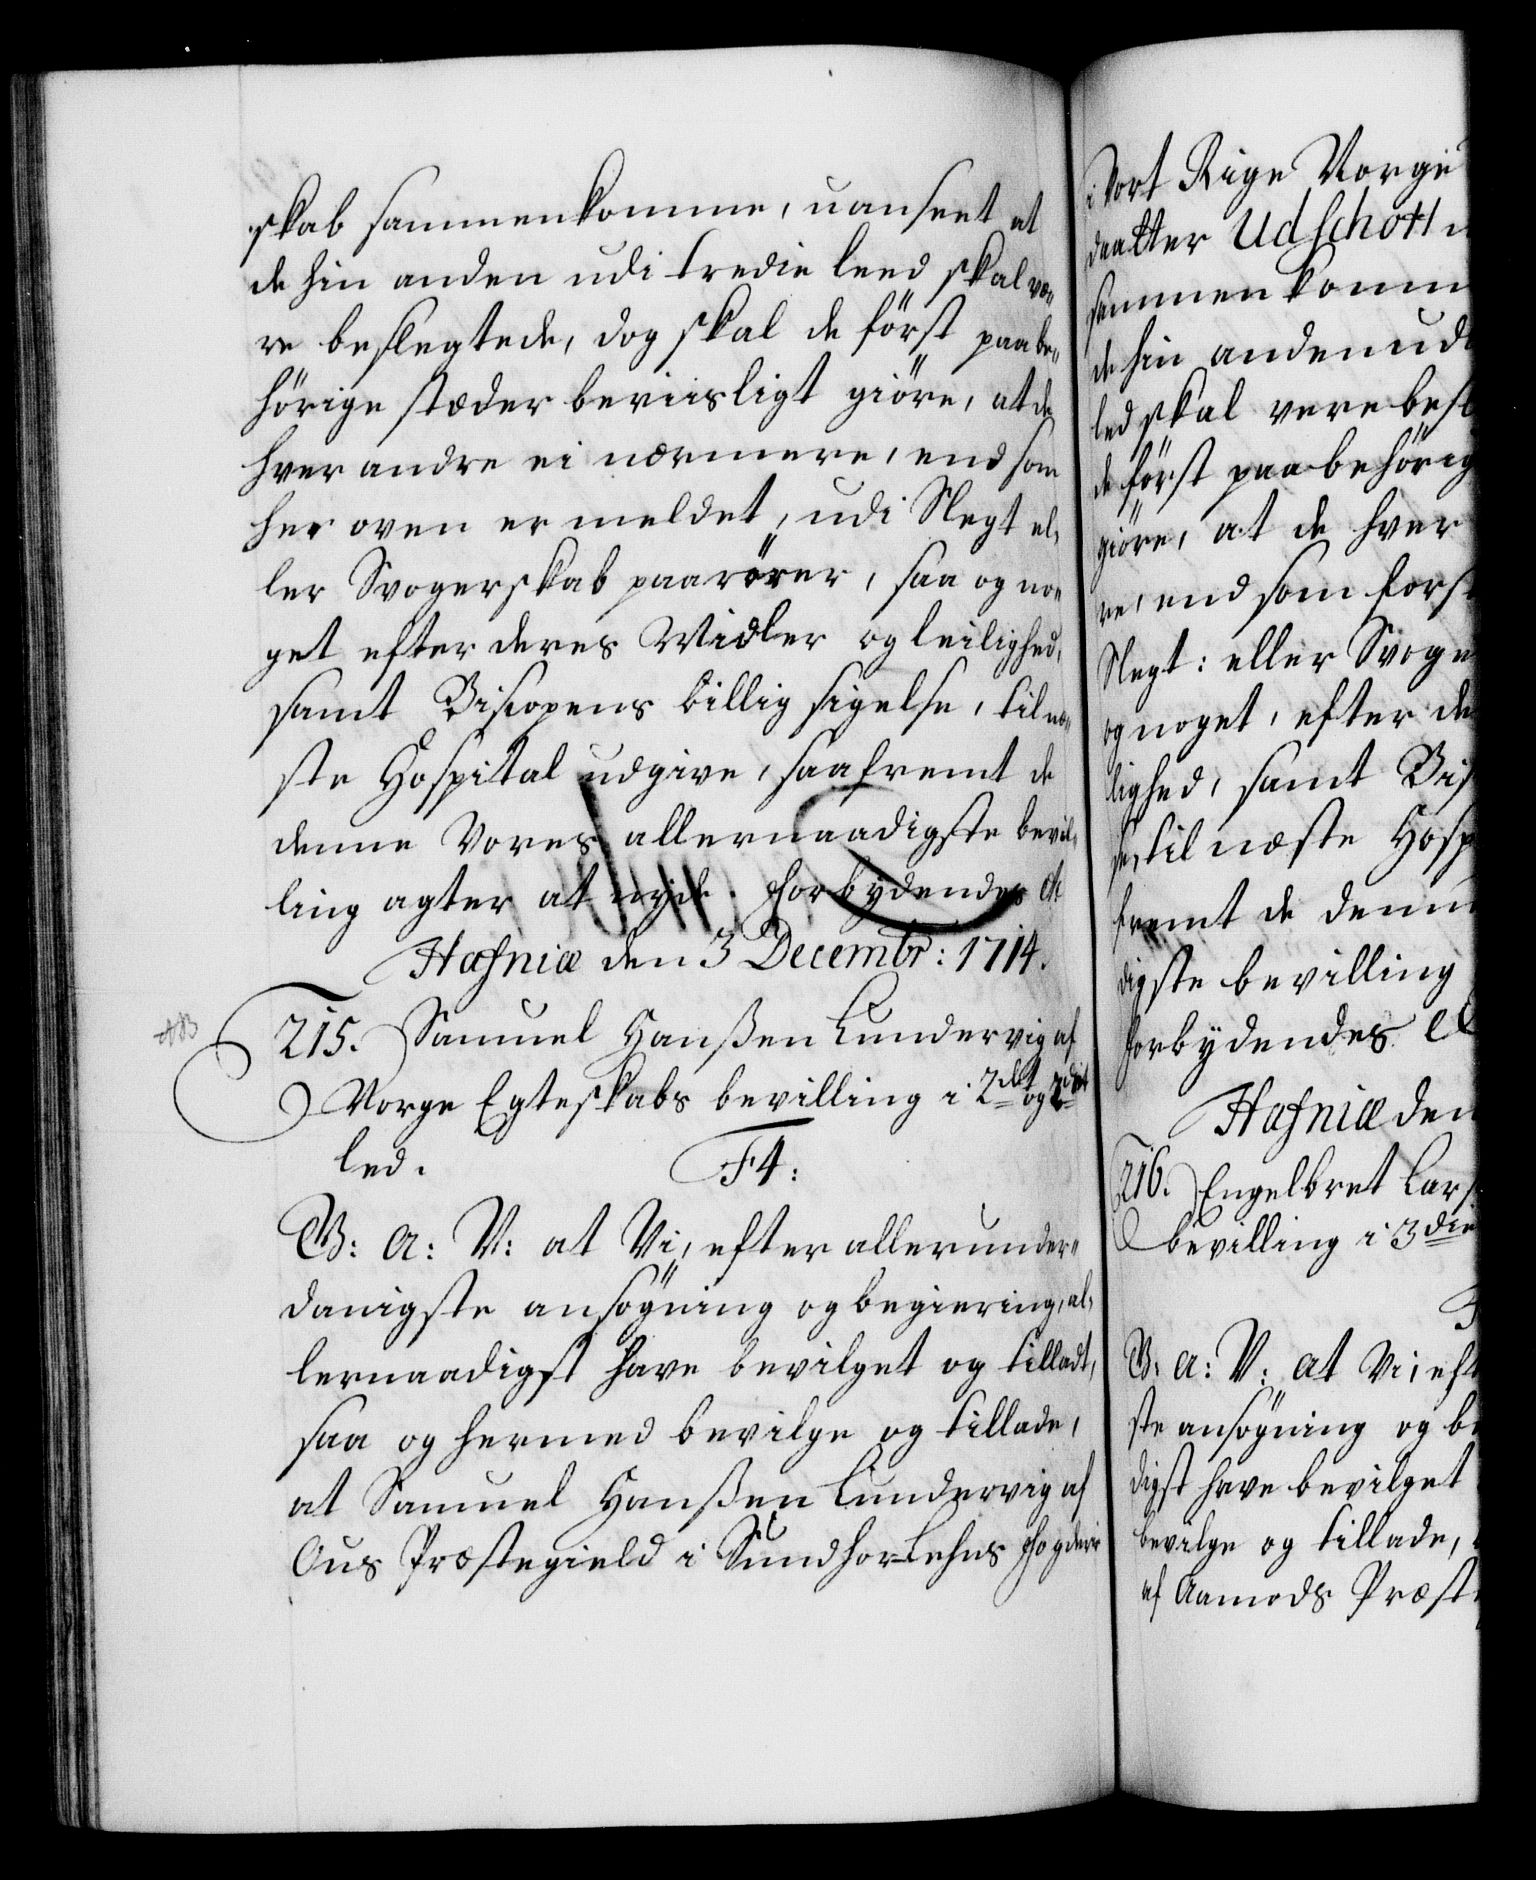 skab sammenkomme, uanseet at
de hin anden udi tredie leed skal væ„
re beslegtede, dog skal de först paa be„
hörige stæder beviisligt giöre, at de
hver andre ei nærmere, end som
her oven er meldet, udi Slegt el„
ler Svogerskab paarörer, saa og no„
get efter deres Midler og leilighed,
samt Biscopens billig sigelse, til næ„
ste Hospital udgive, saafremt de
denne Vores allernaadigste bevil„
ling agter at nyde. Forbydendes et
Hafniæ den 3 Decembr: 1714.
215. Samuel Hanßen Lundervig af
Norge Egteskabs bevilling i 2det og 3die
led.
F4:
G: A: V: at Vi, efter allerunder„
danigste ansögning og begiering, al„
lernaadigst have bevilget og tilladt,
saa og hermed bevilge og tillade,
at Samuel Hanßen Lundervig af
Ous Præstegield i Sundhor-Lehns Fogderie
i Vort Rige Norge
daatter Udschott
sammenkomm
de hin anden ud
led skal vere besl
de först paa behörig
giöre, at de hver
re, end som forst
Slegt: eller Svoge
og noget, efter de
lighed, samt Bis
se, til næste Hosp
fremt de denne
digste bevilling
Forbydendes et
Hafniæ den
216. Engelbret Lars
bevilling i 3die
G: A: V: at Vi, eft
ste ansögning og be
digst have bevilget
bevilge og tillade,
af Aamods Præst